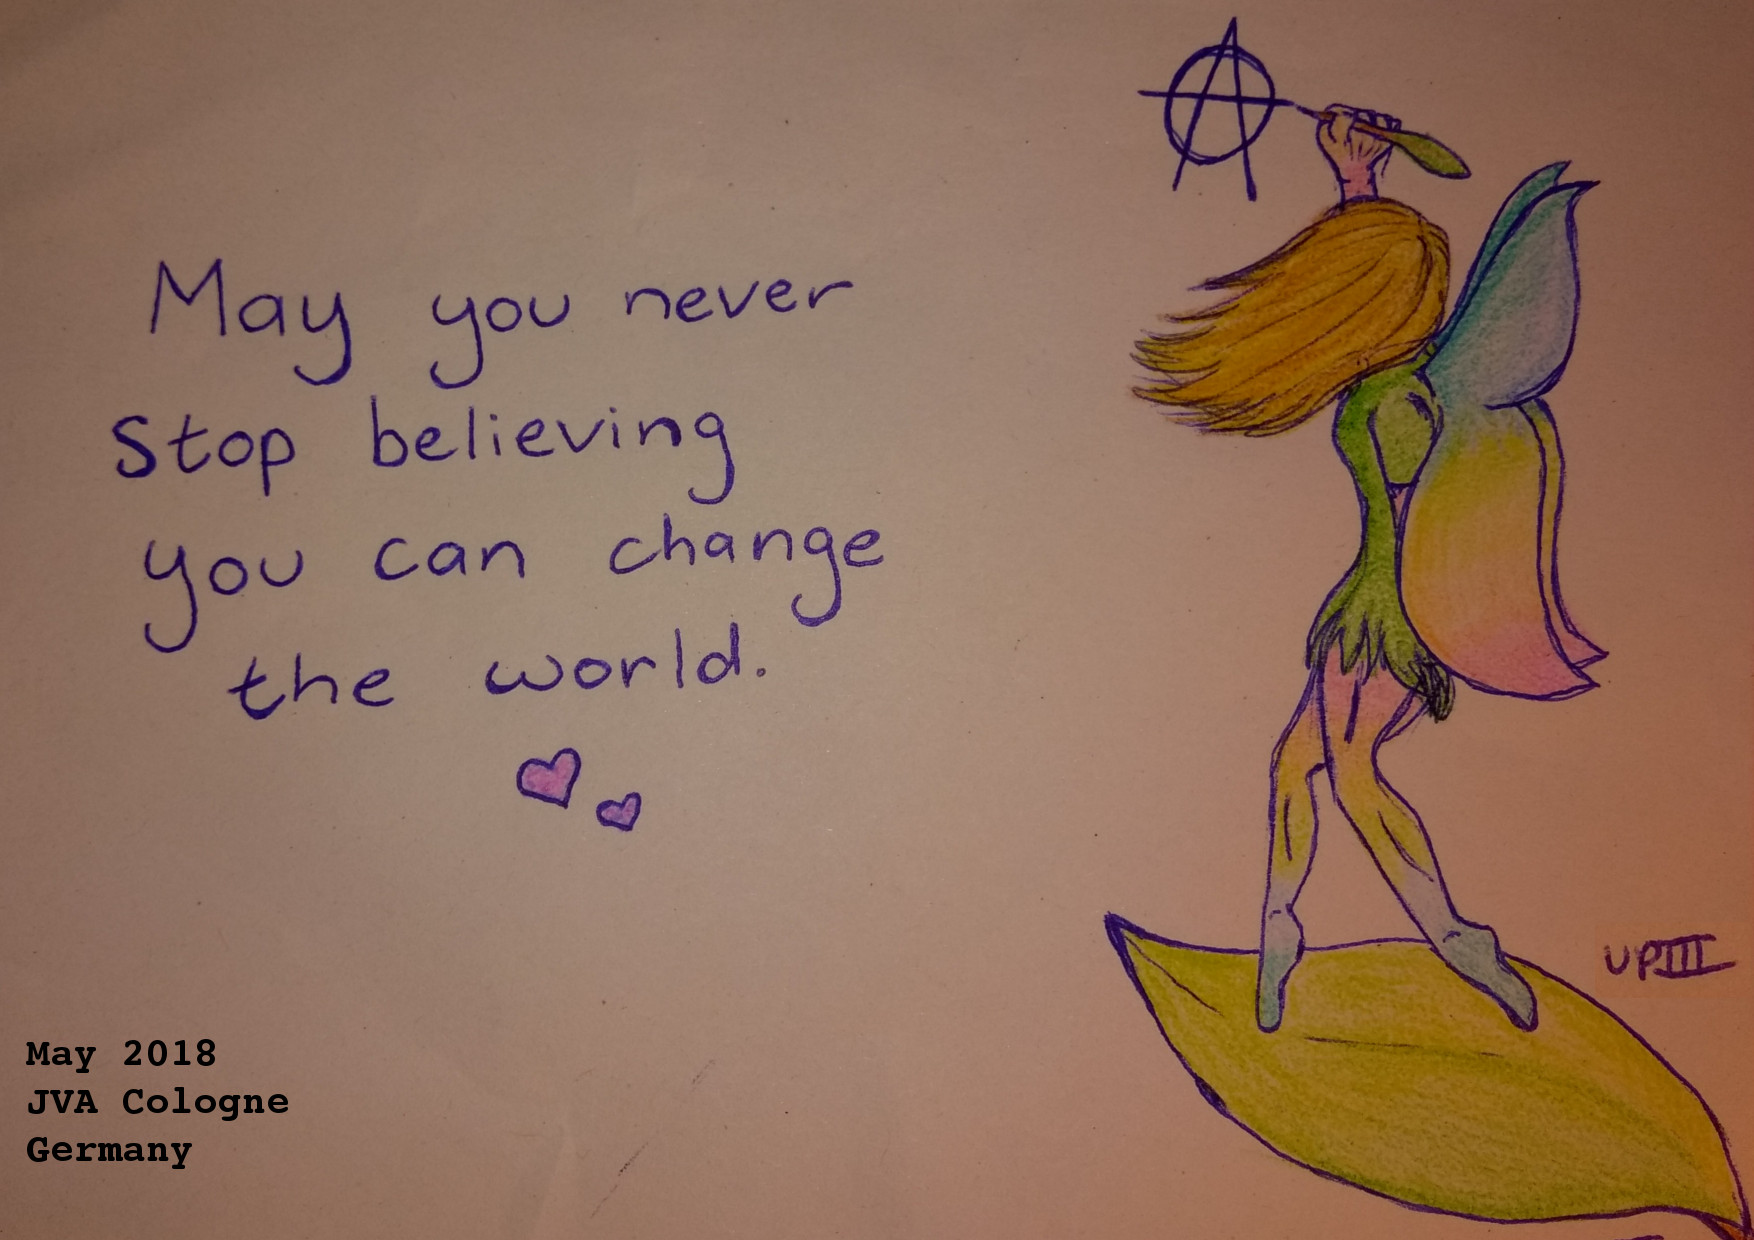 May you never
stop believing
you can change
the world.
UPIII
May 2018
JVA Cologne
Germany